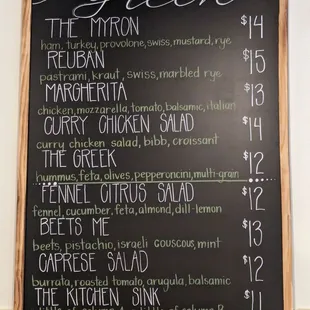 Green
THE MYRON $14
ham, turkey, provolone, swiss, mustard, rye
REUBAN $15
pastrami, kraut, swiss, marbled rye
MARGHERITA $13
chicken, mozzarella, tomato, balsamic, italian
CURRY CHICKEN SALAD $14
curry chicken salad, bibb, croissant
THE GREEK $12
hummus, feta, olives, pepperoncini, multi-grain
FENNEL CITRUS SALAD $12
fennel, cucumber, feta, almond, dill-lemon
BEETS ME $13
beets, pistachio, israeli couscous, mint
CAPRESE SALAD $12
burrata, roasted tomato, arugula, balsamic
THE KITCHEN SINK $11